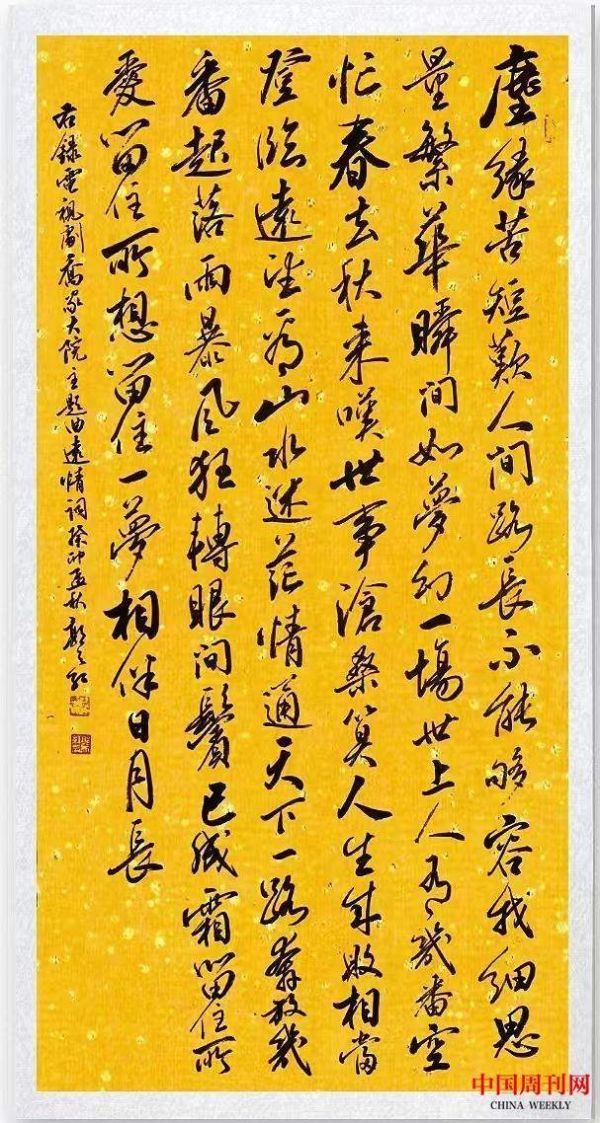 塵緣苦短歎人間路長不能够容我細思
量繁華瞬間如夢幻一場世上人有幾番空
忙春去秋來嘆世事滄桑算人生成敗相當
登臨遠望有山水迷茫情通天下一路奔放幾
番起落雨暴風狂轉眼間鬢已成霜留住所
愛留住所想留住一夢相伴日月長
右錄電視劇喬家大院主題曲遠情詞癸卯孟秋
中国周刊网
CHINA WEEKLY